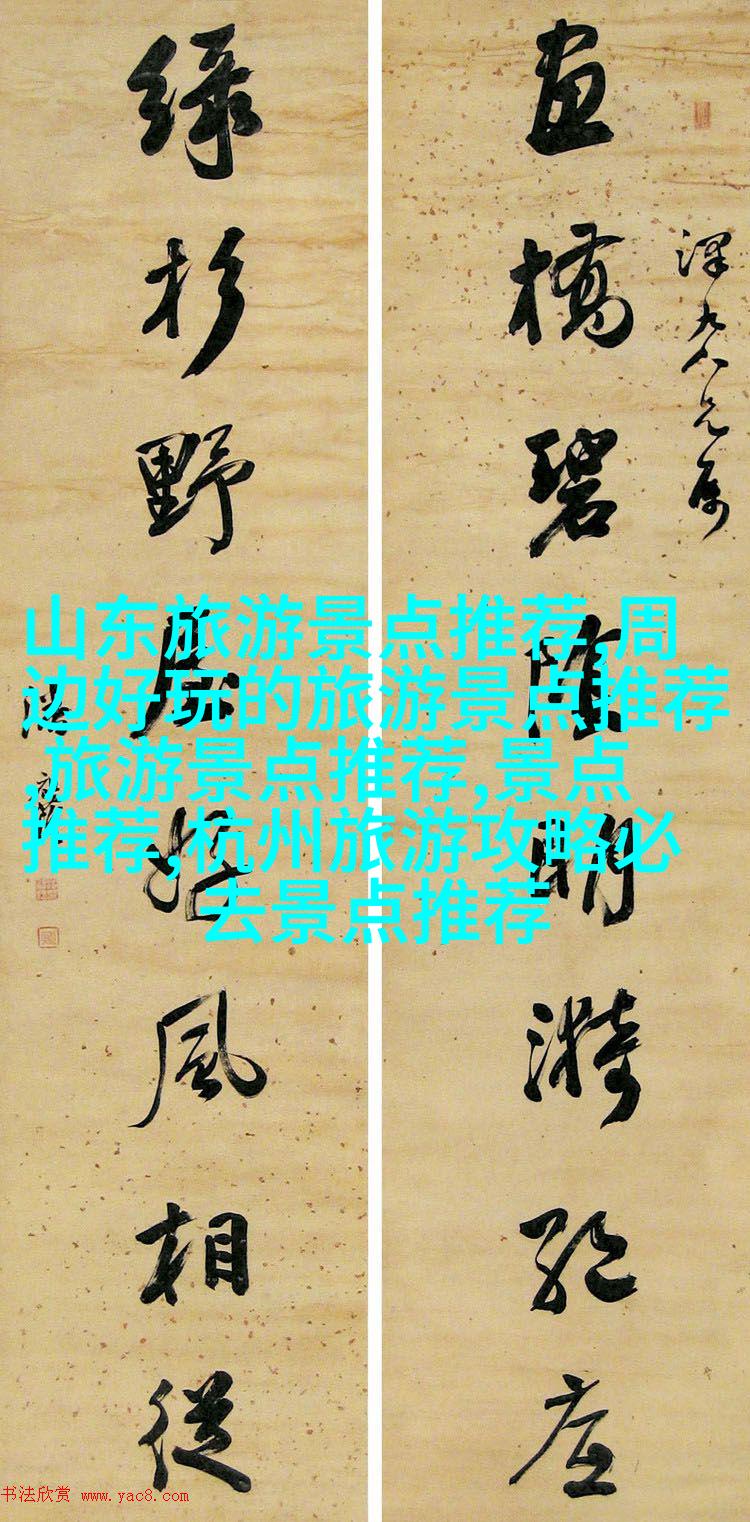 畫橋碧陰明漪絕底
綠杉野屋好風相從
山东旅游景点推荐,周
边好玩的旅游景点推荐
,旅游景点推荐,景点
推荐,杭州旅游攻略必
去景点推荐
书法欣赏 www.yac8.com